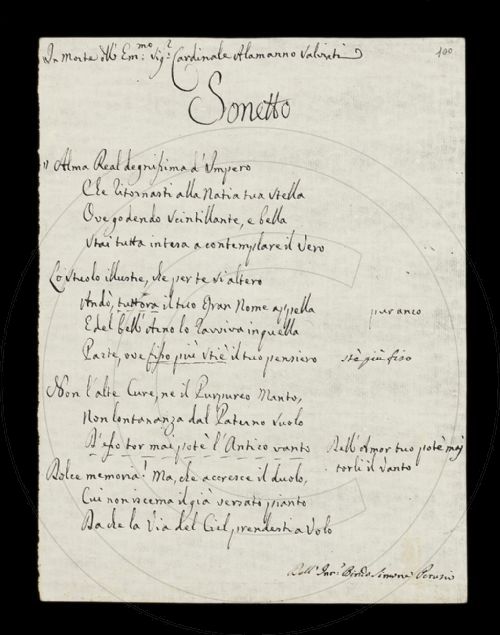 In Morte dell' Em.mo Sig.r Cardinale Alamanno Salviati
100
Sonetto
Alma Real degnissima d'Impero
Che ritornasti alla Natia tua Stella
Ove godendo Scintillante, e bella
Stai tutta intesa a contemplare il Vero
Lo Stuolo illustre, che per te sì altero
Andò, tuttora il tuo Gran Nome appella
pur anco
E del bell' Arno lo ravviva in quella
Parte, ove fisso più stiè il tuo pensiero
stè più fiso
Non l'alte Cure, ne il Purpureo Manto,
Non lontananza dal Paterno Suolo
D'esso tor mai potè l'Antico vanto
Dell'Amor tuo potè mai
torli il Vanto
Dolce memoria! Ma, che accresce il duolo,
Cui non scema il già versato pianto
Da che la Via del Ciel prendesti a Volo
Simone